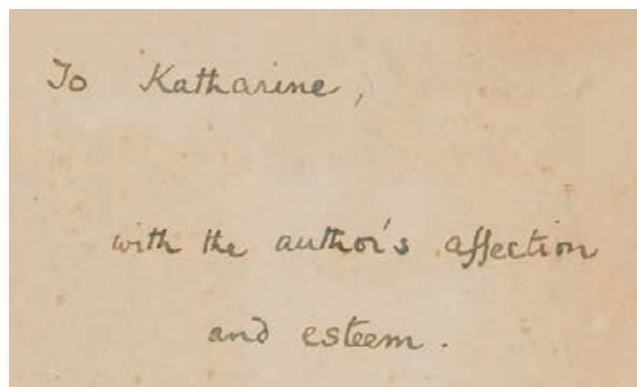 To Katharine,
with the author's affection
and esteem.